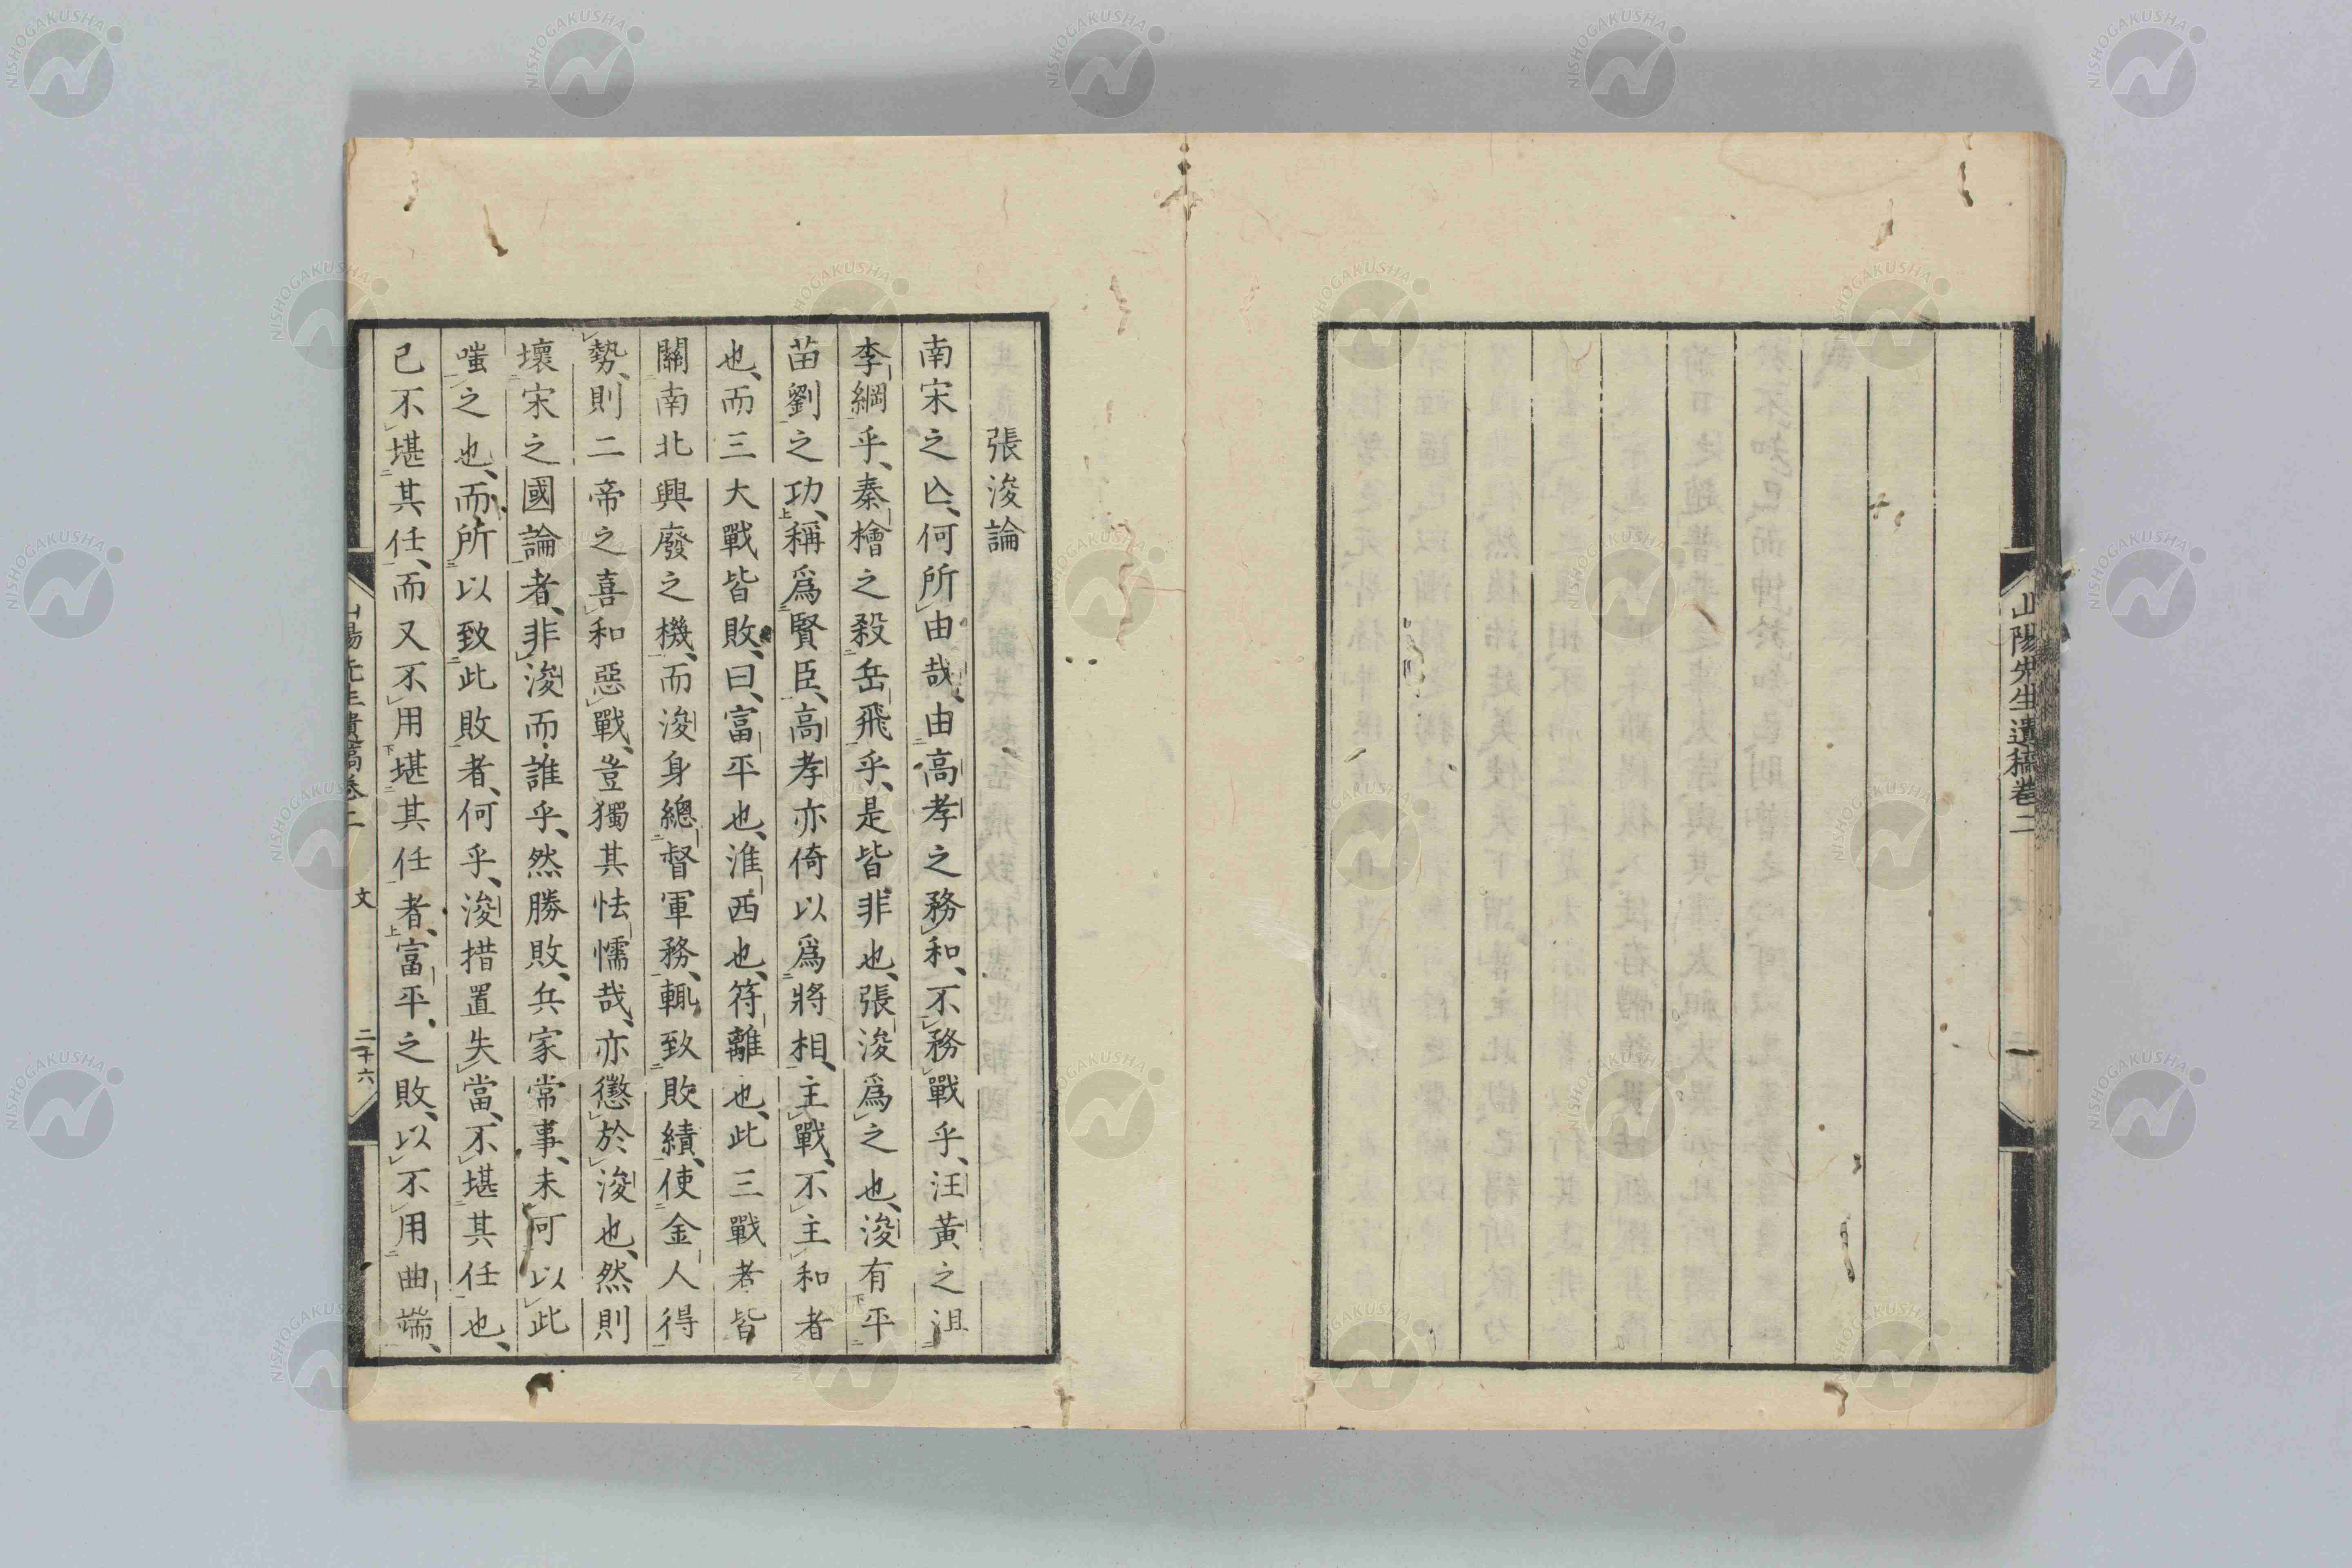 山陽先生遺稿卷二
張浚論
南宋之亾、何所由哉、由高孝之務和、不務戰乎、汪黃之沮
李綱乎、秦檜之殺岳飛乎、是皆非也、張浚爲之也、浚有平
苗劉之功、稱爲賢臣、高孝亦倚以爲將相、主戰、不主和者
也、而三大戰皆敗、曰、富平也、淮西也、符離也、此三戰者皆
關南北興廢之機、而浚身總督軍務、輒致敗績、使金人得
勢、則二帝之喜和惡戰、豈獨其怯懦哉、亦懲於浚也、然則
壞宋之國論者、非浚而誰乎、然勝敗、兵家常事、未可以此
嗤之也、而所以致此敗者、何乎、浚措置失當、不堪其任也、
己不堪其任、而又不用堪其任者、富平之敗、以不用曲端、
山陽先生遺稿卷二
文
二十六
NISHOGAKUSHA